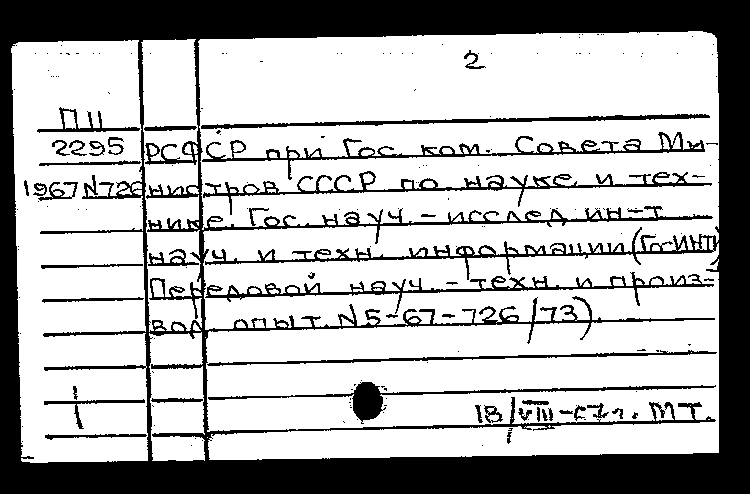 2
П11
2295 РСФСР при Гос. ком. Совета Ми-
1967 N726 нистров СССР по науке и тех-
нике. Гос. науч.-исслед. ин-т
науч. и техн. информации (ГосИНТИ
Передовой науч.-техн. и произ-
вод. опыт. N5-67-726/73).
18/VIII-67г. МТ.